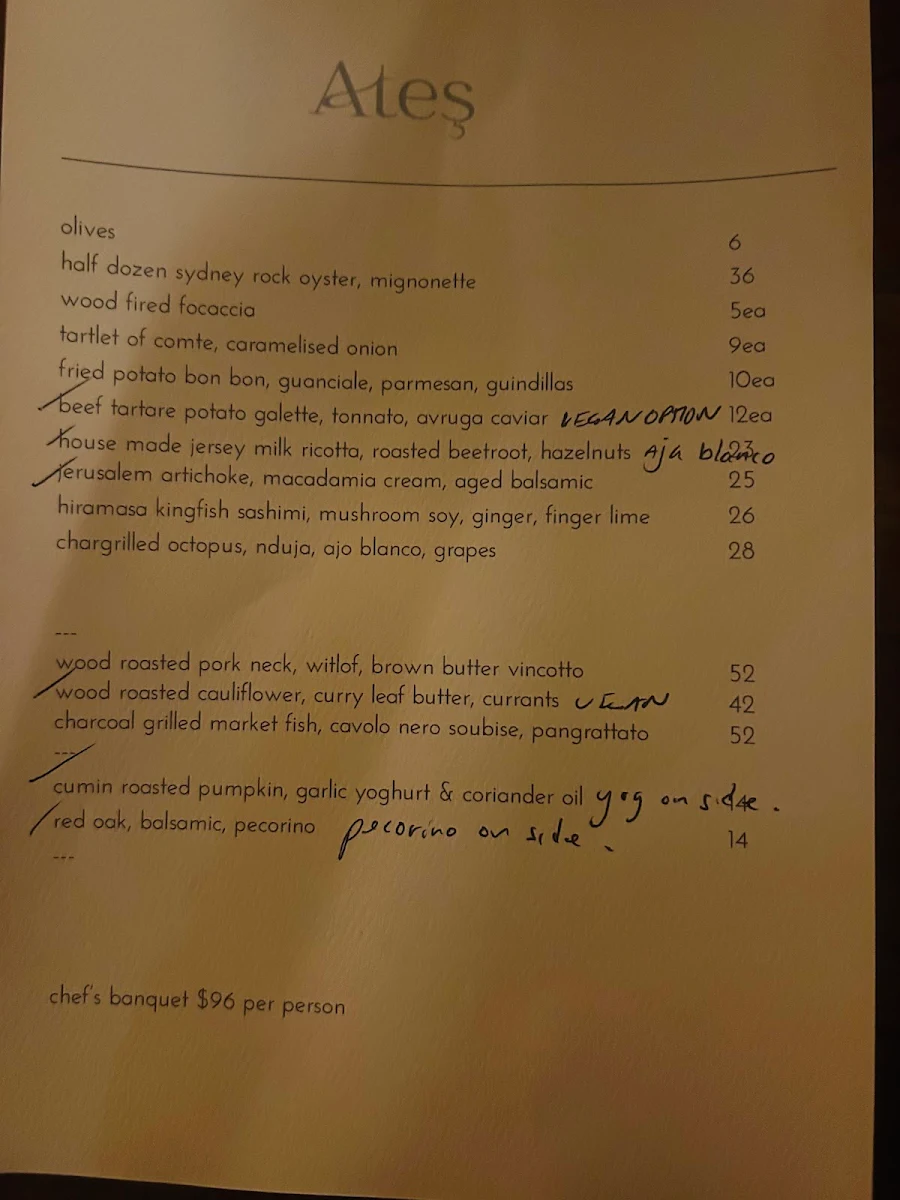 Ateş
olives 6
half dozen sydney rock oyster, mignonette 36
wood fired focaccia 5ea
tartlet of comte, caramelised onion 9ea
fried potato bon bon, guanciale, parmesan, guindillas 10ea
beef tartare potato galette, tonnato, avruga caviar VEGAN OPTION 12ea
house made jersey milk ricotta, roasted beetroot, hazelnuts Aja blanco 23
jerusalem artichoke, macadamia cream, aged balsamic 25
hiramasa kingfish sashimi, mushroom soy, ginger, finger lime 26
chargrilled octopus, nduja, ajo blanco, grapes 28
---
wood roasted pork neck, witlof, brown butter vincotto 52
wood roasted cauliflower, curry leaf butter, currants VEGAN 42
charcoal grilled market fish, cavolo nero soubise, pangrattato 52
---
cumin roasted pumpkin, garlic yoghurt & coriander oil yog on side.
red oak, balsamic, pecorino pecorino on side. 14
---
chef's banquet $96 per person